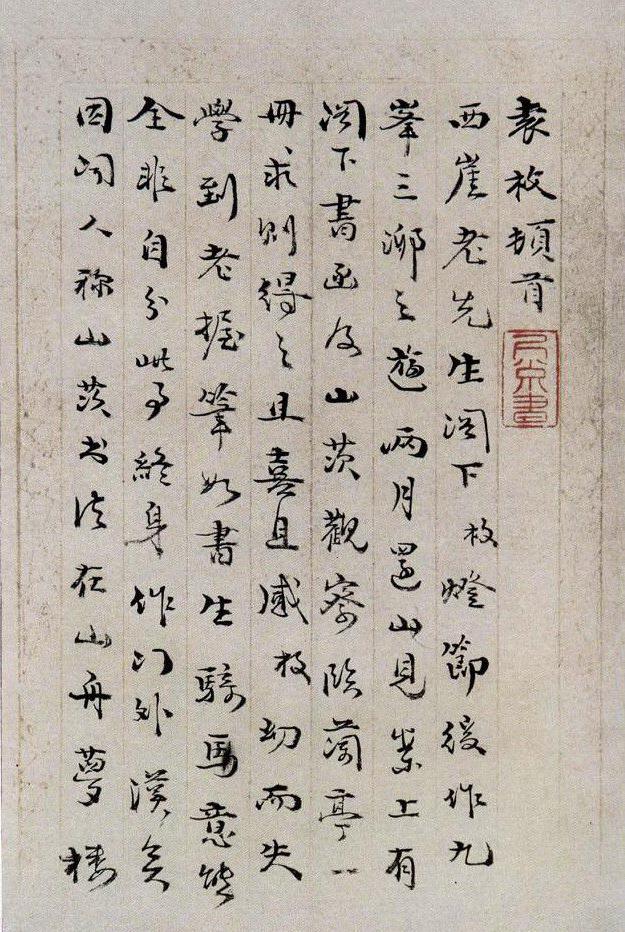 袁枚頓首
西崖老先生閣下枚燈節後作九
峯三泖之遊兩月還山見案上有
閣下書函及山茨觀察臨蘭亭一
冊求則得之且喜且感枚幼而失
學到老握筆如書生騎馬意態
全非自分此事終身作門外漢矣
因聞人稱山茨書法在山舟夢樓